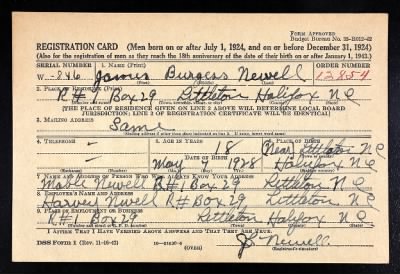 FORM APPROVED
Budget Bureau No. 33-R012-42
REGISTRATION CARD—(Men born on or after July 1, 1924, and on or before December 31, 1924)
(Also for the registration of men as they reach the 18th anniversary of the date of their birth on or after January 1, 1943.)
SERIAL NUMBER 1. NAME (Print) ORDER NUMBER
W-846 James Burgess Newell 12854
2. PLACE OF RESIDENCE (Print)
R#1 Box 29 Littleton Halifax N C
(THE PLACE OF RESIDENCE GIVEN ON LINE 2 ABOVE WILL DETERMINE LOCAL BOARD
JURISDICTION; LINE 2 OF REGISTRATION CERTIFICATE WILL BE IDENTICAL)
3. MAILING ADDRESS
Same
4. TELEPHONE 5. AGE IN YEARS 6. PLACE OF BIRTH
18 Near Littleton N C
DATE OF BIRTH
May 7 1928 Halifax N C
7. NAME AND ADDRESS OF PERSON WHO WILL ALWAYS KNOW YOUR ADDRESS
Mable Newell R#1 Box 29 Littleton N C
8. EMPLOYER'S NAME AND ADDRESS
Harvey Newell R#1 Box 29 Littleton N C
9. PLACE OF EMPLOYMENT OR BUSINESS
R#1 Box 29 Littleton Halifax N C
I AFFIRM THAT I HAVE VERIFIED ABOVE ANSWERS AND THAT THEY ARE TRUE.
DSS Form 1 (Rev. 11-16-42) (OVER) Newell
(Registrant's signature)